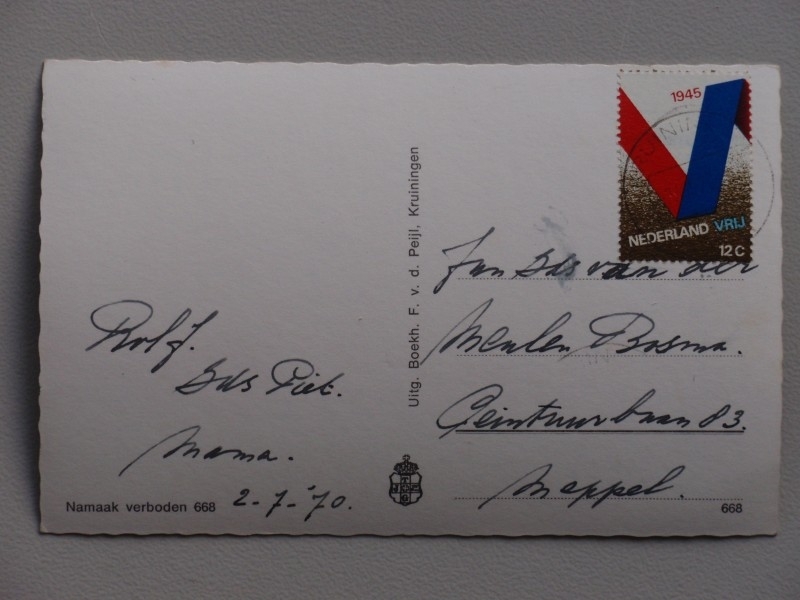 1945
NEDERLAND VRIJ
12c
Uitg. Boekh. F. v. d. Peijl, Kruiningen
van der
Meulen Bosma.
Ceintuurbaan 83.
Meppel.
Piet.
Mama.
2-7-'70.
Namaak verboden 668
668